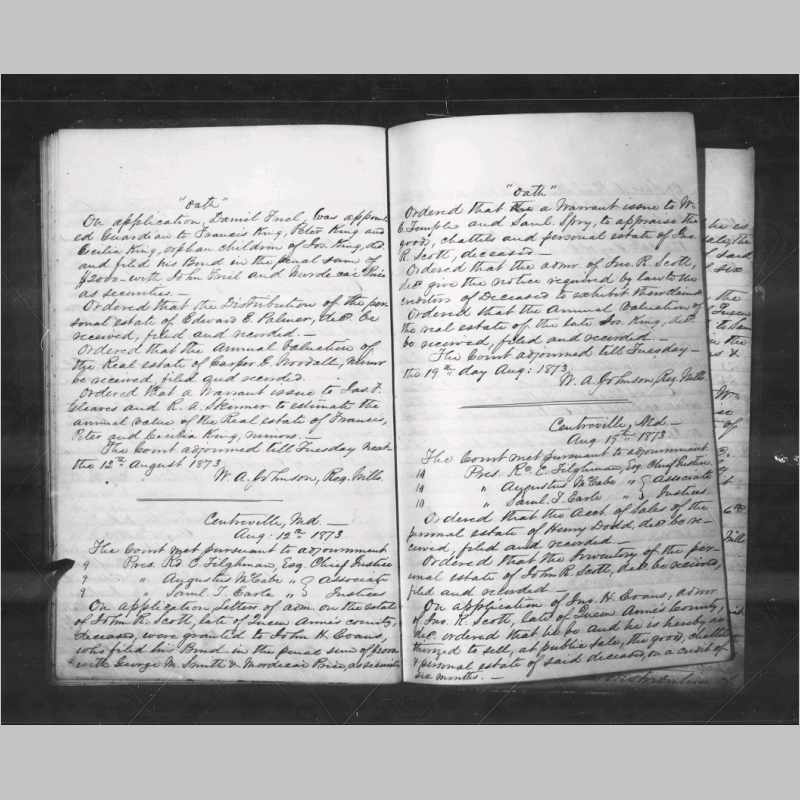 "Oath"
On application, Daniel Friel, was appoint-
ed Guardian to Francis King, Peter King and
Cecilia King, orphan children of Jos. King, decd.
and filed his Bond in the penal sum of
$2000 – with John Friel and Mordecai Price
as securities. –
Ordered that the Distribution of the per-
sonal estate of Edward E. Palmer, decd. be
received, filed and recorded. –
Ordered that the Annual Valuation of
the Real estate of Casper E. Woodall, minor
be received, filed and recorded.
Ordered that a Warrant issue to Jas. F.
Cleaves and R. A. Skinner to estimate the
annual value of the Real estate of Francis,
Peter and Cecilia King, minors. –
The Court adjourned till Tuesday next
the 12th. August 1873
W. A. Johnson, Reg. Wills.
Centreville, Md. –
Aug. 12th. 1873
The Court met pursuant to adjournment
9 Pres. Rd. C. Tilghman, Esq. Chief Justice
9 " Augustus McCabe " } Associate
9 " Saml. T. Earle " } Justices
On application, Letters of adm. on the estate
of John R. Scott, late of Queen Anne's county,
deceased, were granted to John H. Evans,
who filed his Bond in the penal sum of
with George M. Smith & Mordecai Price, as securities
"Oath"
Ordered that a Warrant issue to Wm.
E. Temple and Saml. Spry, to appraise the
goods, chattels and personal estate of Jno.
R. Scott, deceased –
Ordered that the admr. of Jno. R. Scott,
decd. give the notice required by law to the
creditors of Deceased to exhibit their claims
Ordered that the Annual Valuation of
the real estate of the late Jos. King, decd.
be received, filed and recorded –
The Court adjourned till Tuesday –
the 19th. day Aug: 1873
W. A. Johnson, Reg. Wills.
Centreville, Md. –
Aug. 19th. 1873
The Court met pursuant to adjournment
10 Pres. Rd. C. Tilghman, Esq. Chief Justice
10 " Augustus McCabe " } Associate
10 " Saml. T. Earle " } Justices
Ordered that the Acct. of Sales of the
personal estate of Henry Dodd, decd. be re-
ceived, filed and recorded –
Ordered that the Inventory of the per-
sonal estate of John R. Scott, decd. be received,
filed and recorded –
On application of Jno. H. Evans, admr.
of Jno. R. Scott, late of Queen Anne's County,
decd. ordered that he be and he is hereby au-
thorized to sell, at public sale, the goods, chattels
& personal estate of said deceased, on a credit of
six months. –